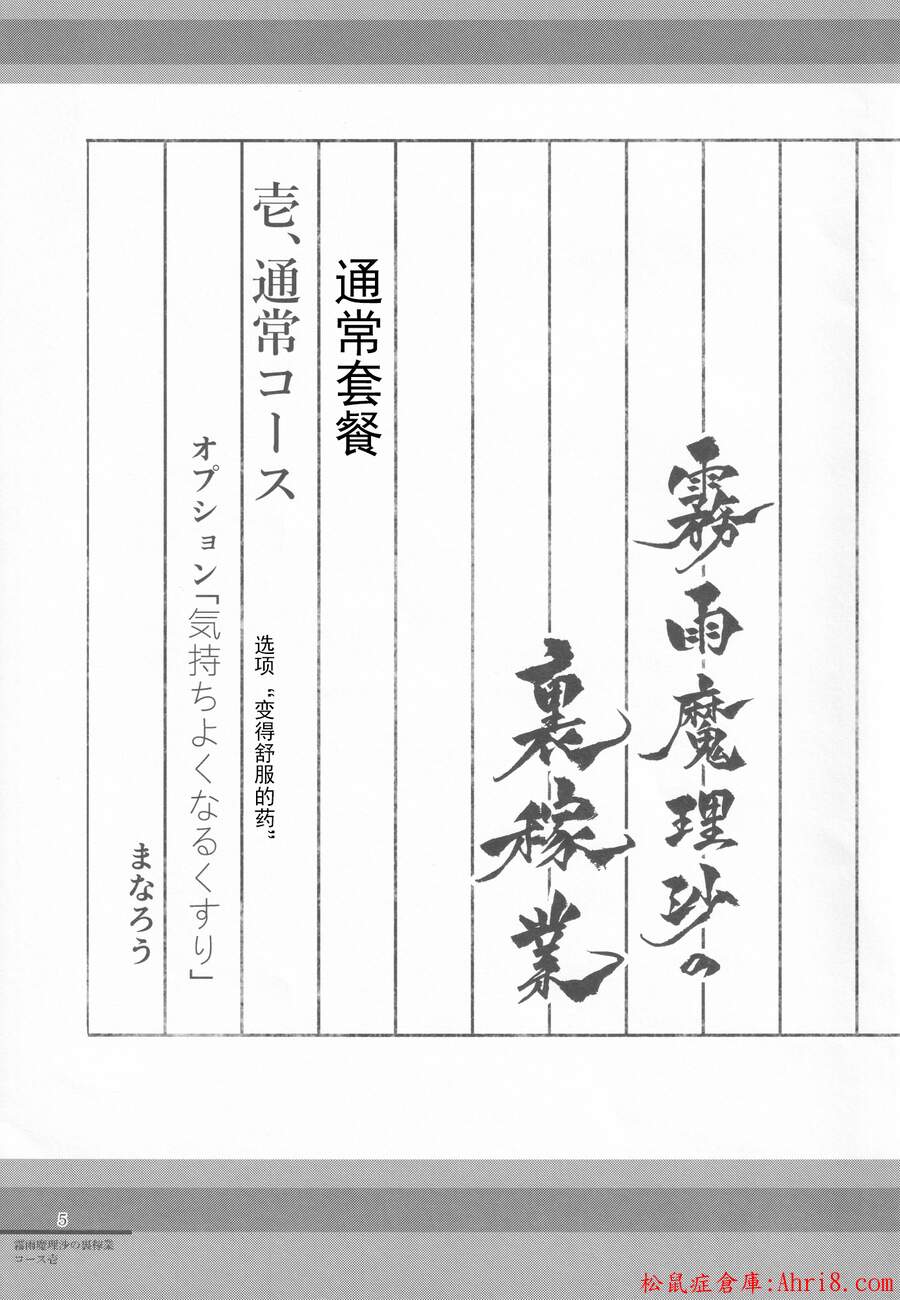 霧雨魔理沙の
裏稼業
通常套餐
壱、通常コース
选项“变得舒服的药”
オプション「気持ちよくなるくすり」
まなろう
5
霧雨魔理沙の裏稼業
コース壱
松鼠症倉庫:Ahri8.com